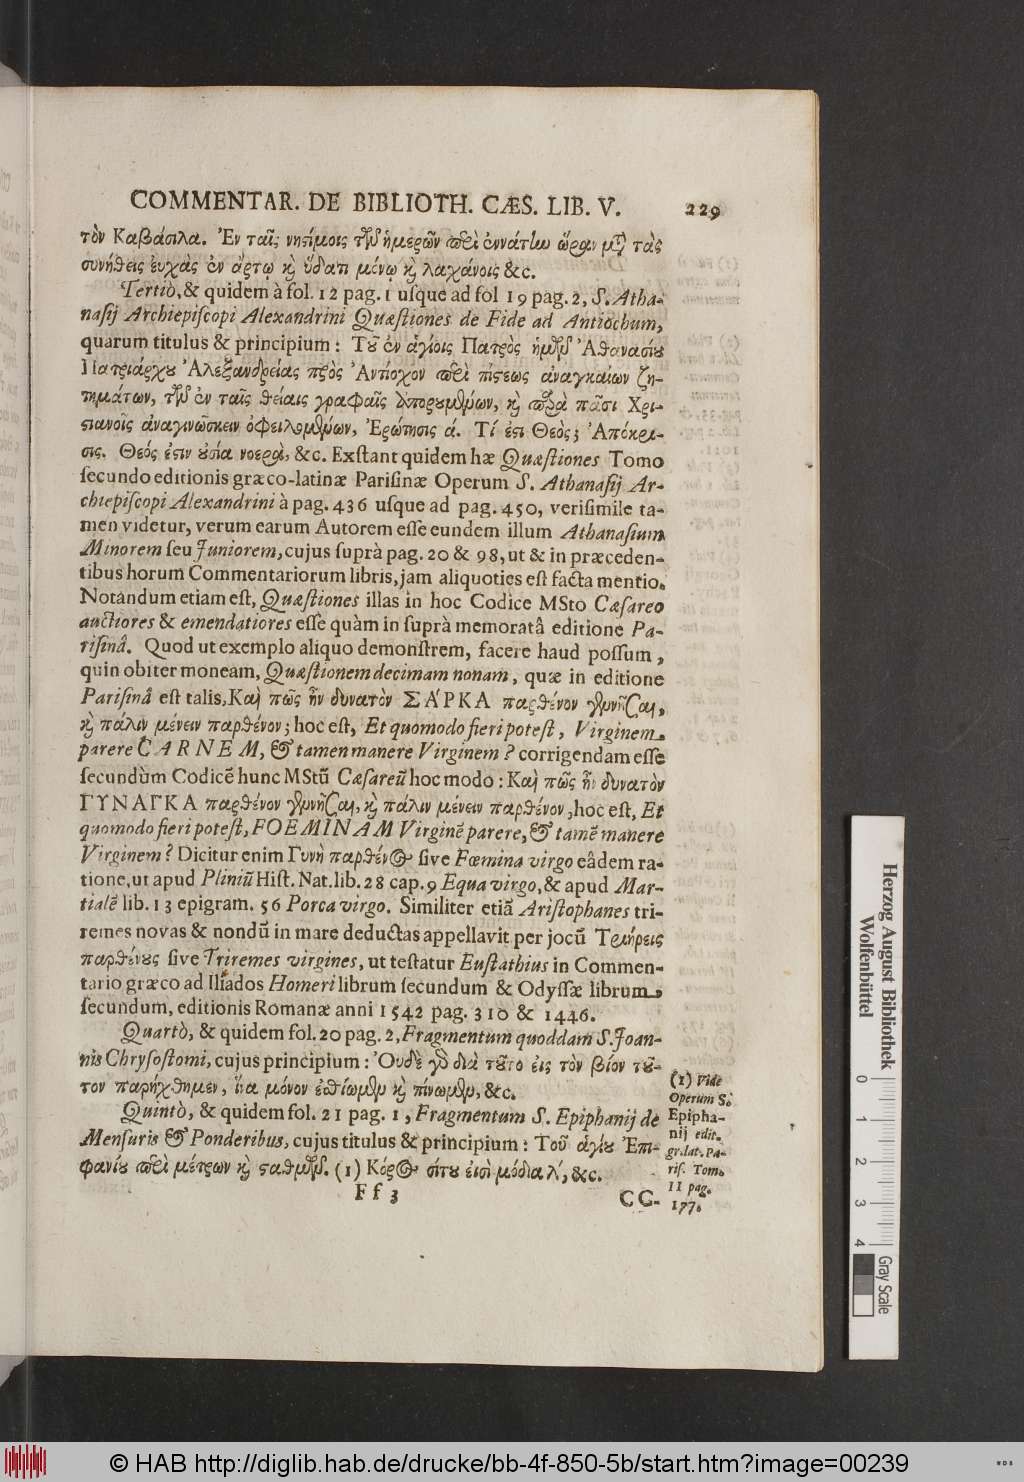 COMMENTAR. DE BIBLIOTH. CÆS. LIB. V. 229
τὸν Καβάσιλα. Ἐν ταῖς νησίμοις τῶν ἡμερῶν περὶ ἐννάτην ὥραν μετὰ τὰς
συνήθεις εὐχὰς ἐν ἄρτῳ καὶ ὕδατι μένῳ καὶ λαχάνοις &c.
Tertiò, & quidem à fol. 12 pag. 1 uſque ad fol 19 pag. 2, S. Atha-
naſij Archiepiſcopi Alexandrini Quæſtiones de Fide ad Antiochum,
quarum titulus & principium: Τοῦ ἐν ἁγίοις Πατρὸς ἡμῶν Ἀθανασίου
Πατριάρχου Ἀλεξανδρείας πρὸς Ἀντίοχον περὶ πίστεως ἀναγκαίων ζη-
τημάτων, τῶν ἐν ταῖς θείαις γραφαῖς ἀπορουμένων, καὶ παρὰ πᾶσι Χρι-
στιανοῖς ἀναγινώσκειν ὀφειλομένων, Ἐρώτησις ά. Τί ἐστι Θεὸς; Ἀπόκρι-
σις. Θεός ἐστιν οὐσία νοερὰ, &c. Exſtant quidem hæ Quæſtiones Tomo
ſecundo editionis græco-latinæ Pariſinæ Operum S. Athanaſij Ar-
chiepiſcopi Alexandrini à pag. 436 uſque ad pag. 450, veriſimile ta-
men videtur, verum earum Autorem eſſe eundem illum Athanaſium
Minorem ſeu Juniorem, cujus ſuprà pag. 20 & 98, ut & in præceden-
tibus horum Commentariorum libris, jam aliquoties eſt facta mentio.
Notandum etiam eſt, Quæſtiones illas in hoc Codice MSto Cæſareo
auctiores & emendatiores eſſe quàm in ſuprà memoratâ editione Pa-
riſinâ. Quod ut exemplo aliquo demonſtrem, facere haud poſſum,
quin obiter moneam, Quæſtionem decimam nonam, quæ in editione
Pariſinâ eſt talis, Καὶ πῶς ἦν δυνατὸν ΣΆΡΚΑ παρθένον γεννῆσαι,
καὶ πάλιν μένειν παρθένον; hoc eſt, Et quomodo fieri poteſt, Virginem
parere CARNEM, & tamen manere Virginem? corrigendam eſſe
ſecundùm Codicē hunc MStū Cæſareū hoc modo: Καὶ πῶς ἦν δυνατὸν
ΓΥΝΑΓΚΑ παρθένον γεννῆσαι, καὶ πάλιν μένειν παρθένον, hoc eſt, Et
quomodo fieri poteſt, FOEMINAM Virginē parere, & tamē manere
Virginem? Dicitur enim Γυνὴ παρθένος ſive Fœmina virgo eâdem ra-
tione, ut apud Pliniū Hiſt. Nat. lib. 28 cap. 9 Equa virgo, & apud Mar-
tialē lib. 13 epigram. 56 Porca virgo. Similiter etiā Ariſtophanes tri-
remes novas & nondū in mare deductas appellavit per jocū Τριήρεις
παρθένους ſive Triremes virgines, ut teſtatur Euſtathius in Commen-
tario græco ad Iliados Homeri librum ſecundum & Odyſſæ librum
ſecundum, editionis Romanæ anni 1542 pag. 310 & 1446.
Quartò, & quidem fol. 20 pag. 2, Fragmentum quoddam S. Joan-
nis Chryſoſtomi, cujus principium: Ὀυδὲ γὰρ διὰ τοῦτο εἰς τὸν βίον τοῦ-
τον παρήχθημεν, ἵνα μόνον ἐσθίωμεν καὶ πίνωμεν, &c.
Quintò, & quidem fol. 21 pag. 1, Fragmentum S. Epiphanij de
Menſuris & Ponderibus, cujus titulus & principium: Τοῦ ἁγίου Ἐπι-
φανίου περὶ μέτρων καὶ σταθμῶν. (1) Κόρος σίτου ἐισὶ μόδια λ΄, &c.
(1) Vide
Operum S.
Epipha-
nij edit.
gr. lat. Pa-
riſ. Tom.
II pag.
177.
Ff 3 CC.
Herzog August Bibliothek
Wolfenbüttel
0 1 2 3 4
Gray Scale
© HAB http://diglib.hab.de/drucke/bb-4f-850-5b/start.htm?image=00239